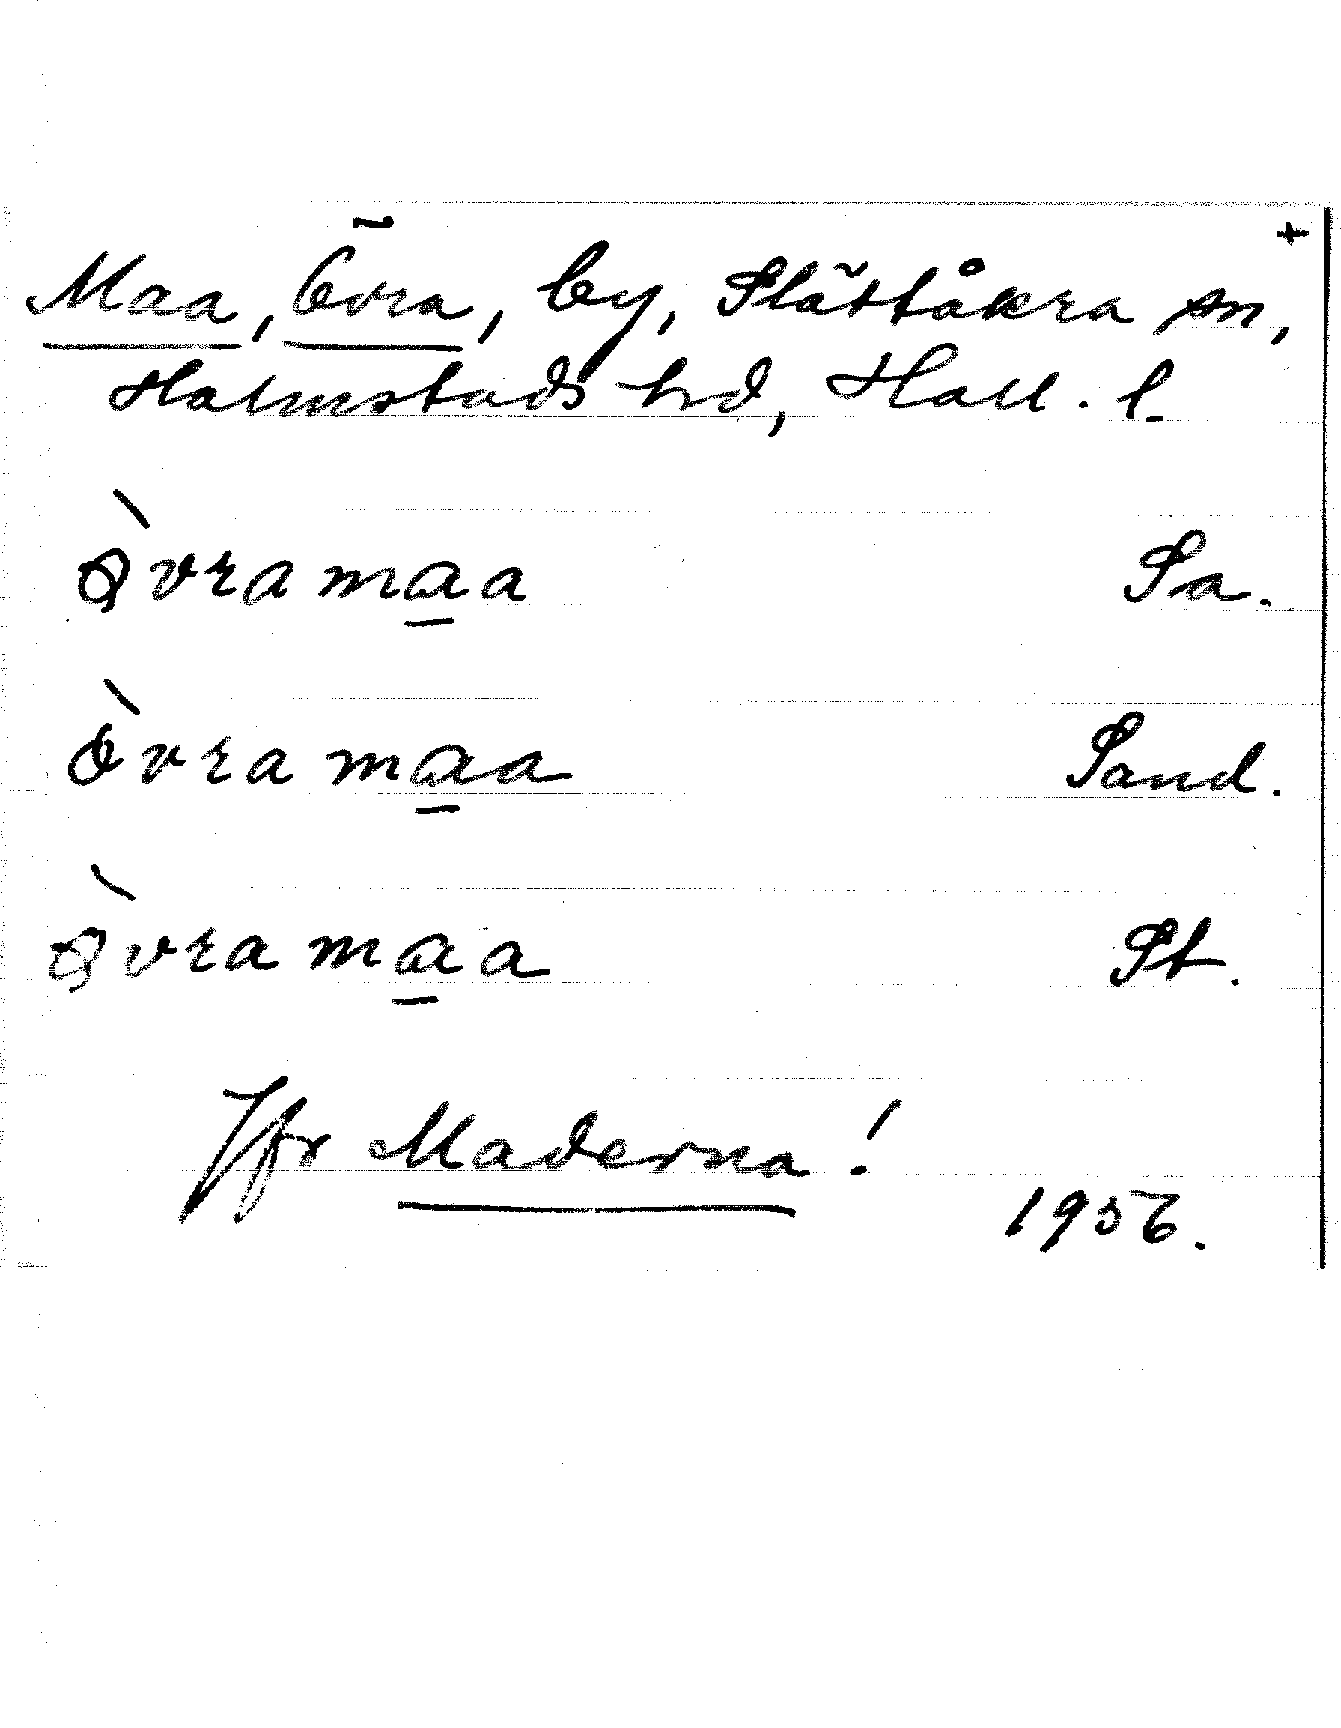 Maa, Övra, by, Slättåkra sn, +
Halmstads hd, Hall. l.
Q̀vra ma̲a Sa.
òvra ma̲a Sand.
Q̀vra ma̲a St.
Jfr Maderna!
1956.